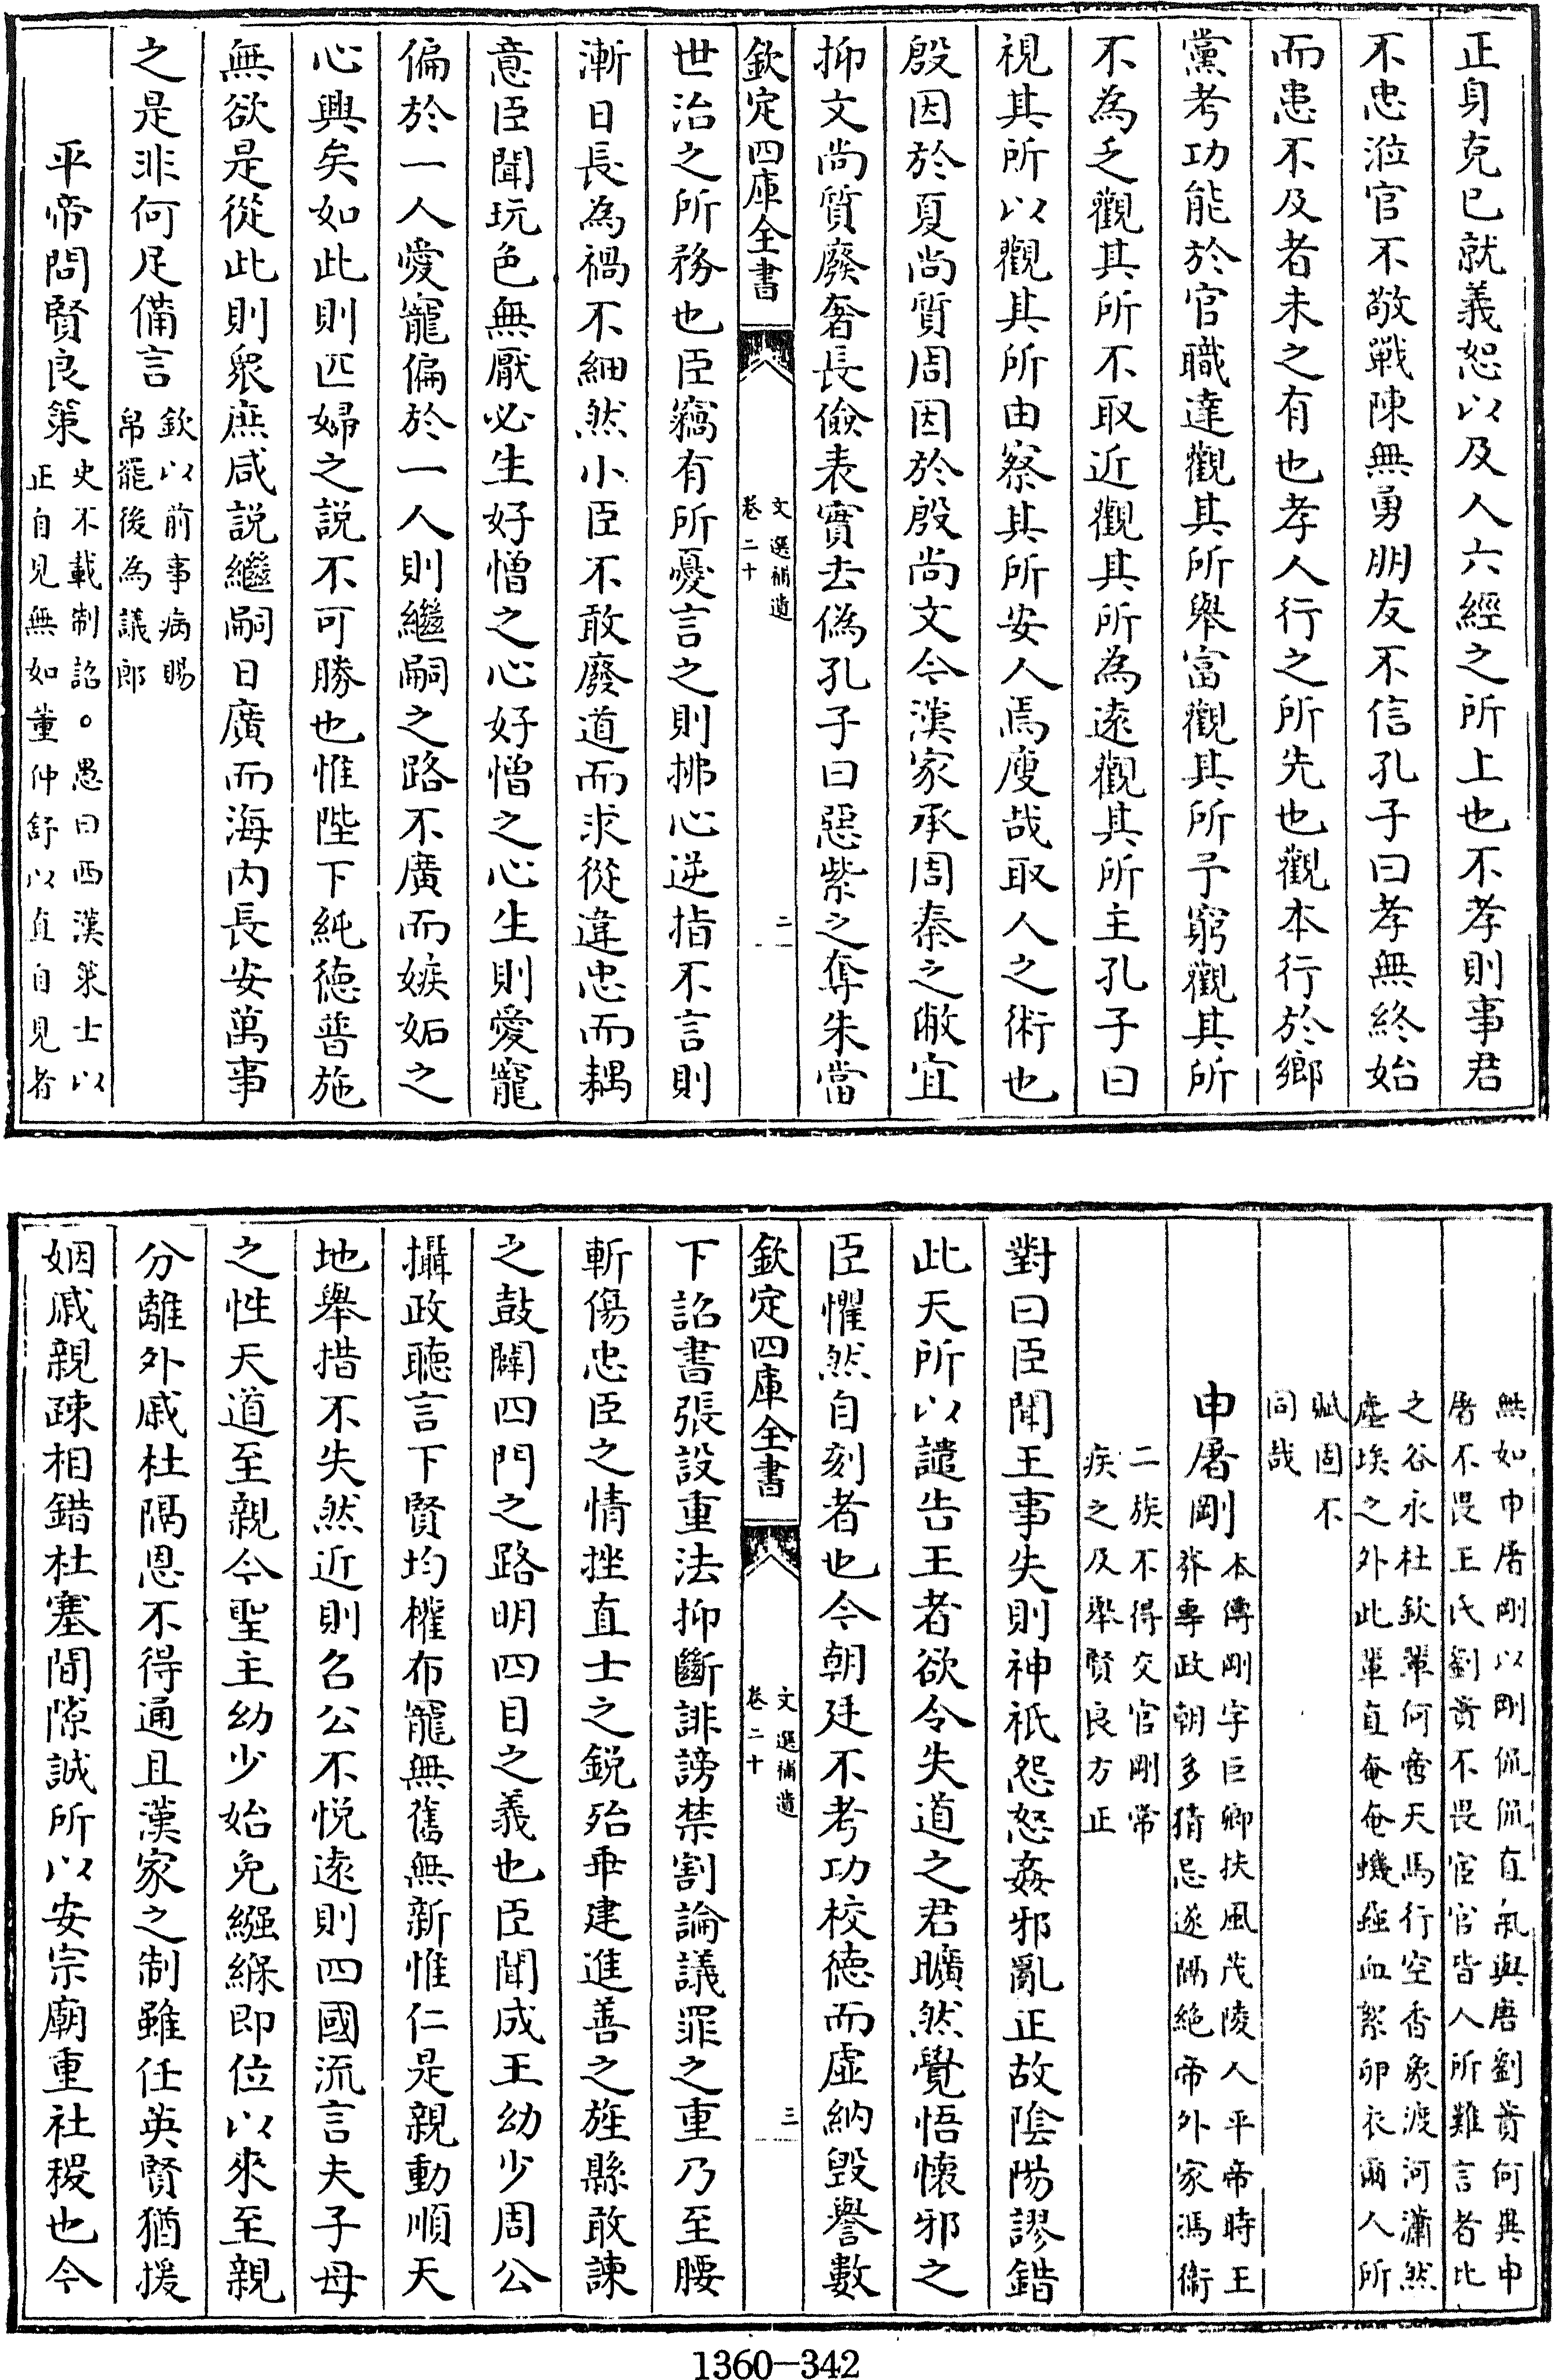 正身克己就義恕以及人六經之所上也不孝則事君
不忠涖官不敬戰陳無勇朋友不信孔子曰孝無終始
而患不及者未之有也孝人行之所先也觀本行於鄉
黨考功能於官職達觀其所舉富觀其所予窮觀其所
不為乏觀其所不取近觀其所為遠觀其所主孔子曰
視其所以觀其所由察其所安人焉廋哉取人之術也
殷因於夏尚質周因於殷尚文今漢家承周秦之敝宜
抑文尚質廢奢長儉表實去偽孔子曰惡紫之奪朱當
欽定四庫全書
文選補遺
卷二十
二
世治之所務也臣竊有所憂言之則拂心逆指不言則
漸日長為禍不細然小臣不敢廢道而求從違忠而耦
意臣聞玩色無厭必生好憎之心好憎之心生則愛寵
偏於一人愛寵偏於一人則繼嗣之路不廣而嫉妬之
心興矣如此則匹婦之說不可勝也惟陛下純德普施
無欲是從此則衆庶咸說繼嗣日廣而海內長安萬事
之是非何足備言
欽以前事病賜
帛罷後為議郎
平帝問賢良策
史不載制詔。愚曰西漢策士以
正自見無如董仲舒以直自見者
無如申屠剛以剛侃侃直氣與唐劉蕡何異申
屠不畏王氏劉蕡不畏宦官皆人所難言者比
之谷永杜欽輩何啻天馬行空香象渡河瀟然
塵埃之外此輩直奄奄蟣蝨血絮卵衣爾人所
賦固不
同哉
申屠剛
本傳剛字巨卿扶風茂陵人平帝時王
莽專政朝多猜忌遂隔絶帝外家馮衛
二族不得交官剛常
疾之及舉賢良方正
對曰臣聞王事失則神祇怨怒姦邪亂正故陰陽謬錯
此天所以譴告王者欲令失道之君曠然覺悟懷邪之
臣懼然自刻者也今朝廷不考功校德而虛納毀譽數
欽定四庫全書
文選補遺
卷二十
三
下詔書張設重法抑斷誹謗禁割論議罪之重乃至腰
斬傷忠臣之情挫直士之鋭殆乖建進善之旌縣敢諫
之鼓闢四門之路明四目之義也臣聞成王幼少周公
攝政聽言下賢均權布寵無舊無新惟仁是親動順天
地舉措不失然近則召公不悅遠則四國流言夫子母
之性天道至親今聖主幼少始免繈緥即位以來至親
分離外戚杜隔恩不得通且漢家之制雖任英賢猶援
姻戚親疎相錯杜塞間隙誠所以安宗廟重社稷也今
1360-342